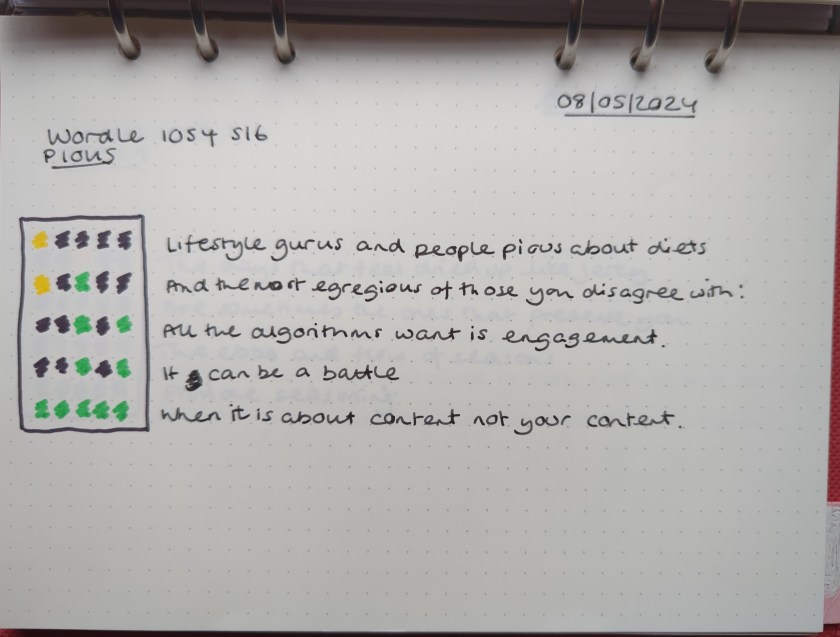 08/05/2024
Wordle 1054 5/6
PIOUS
Lifestyle gurus and people pious about diets
And the most egregious of those you disagree with:
All the algorithms want is engagement.
It can be a battle
When it is about content not your content.